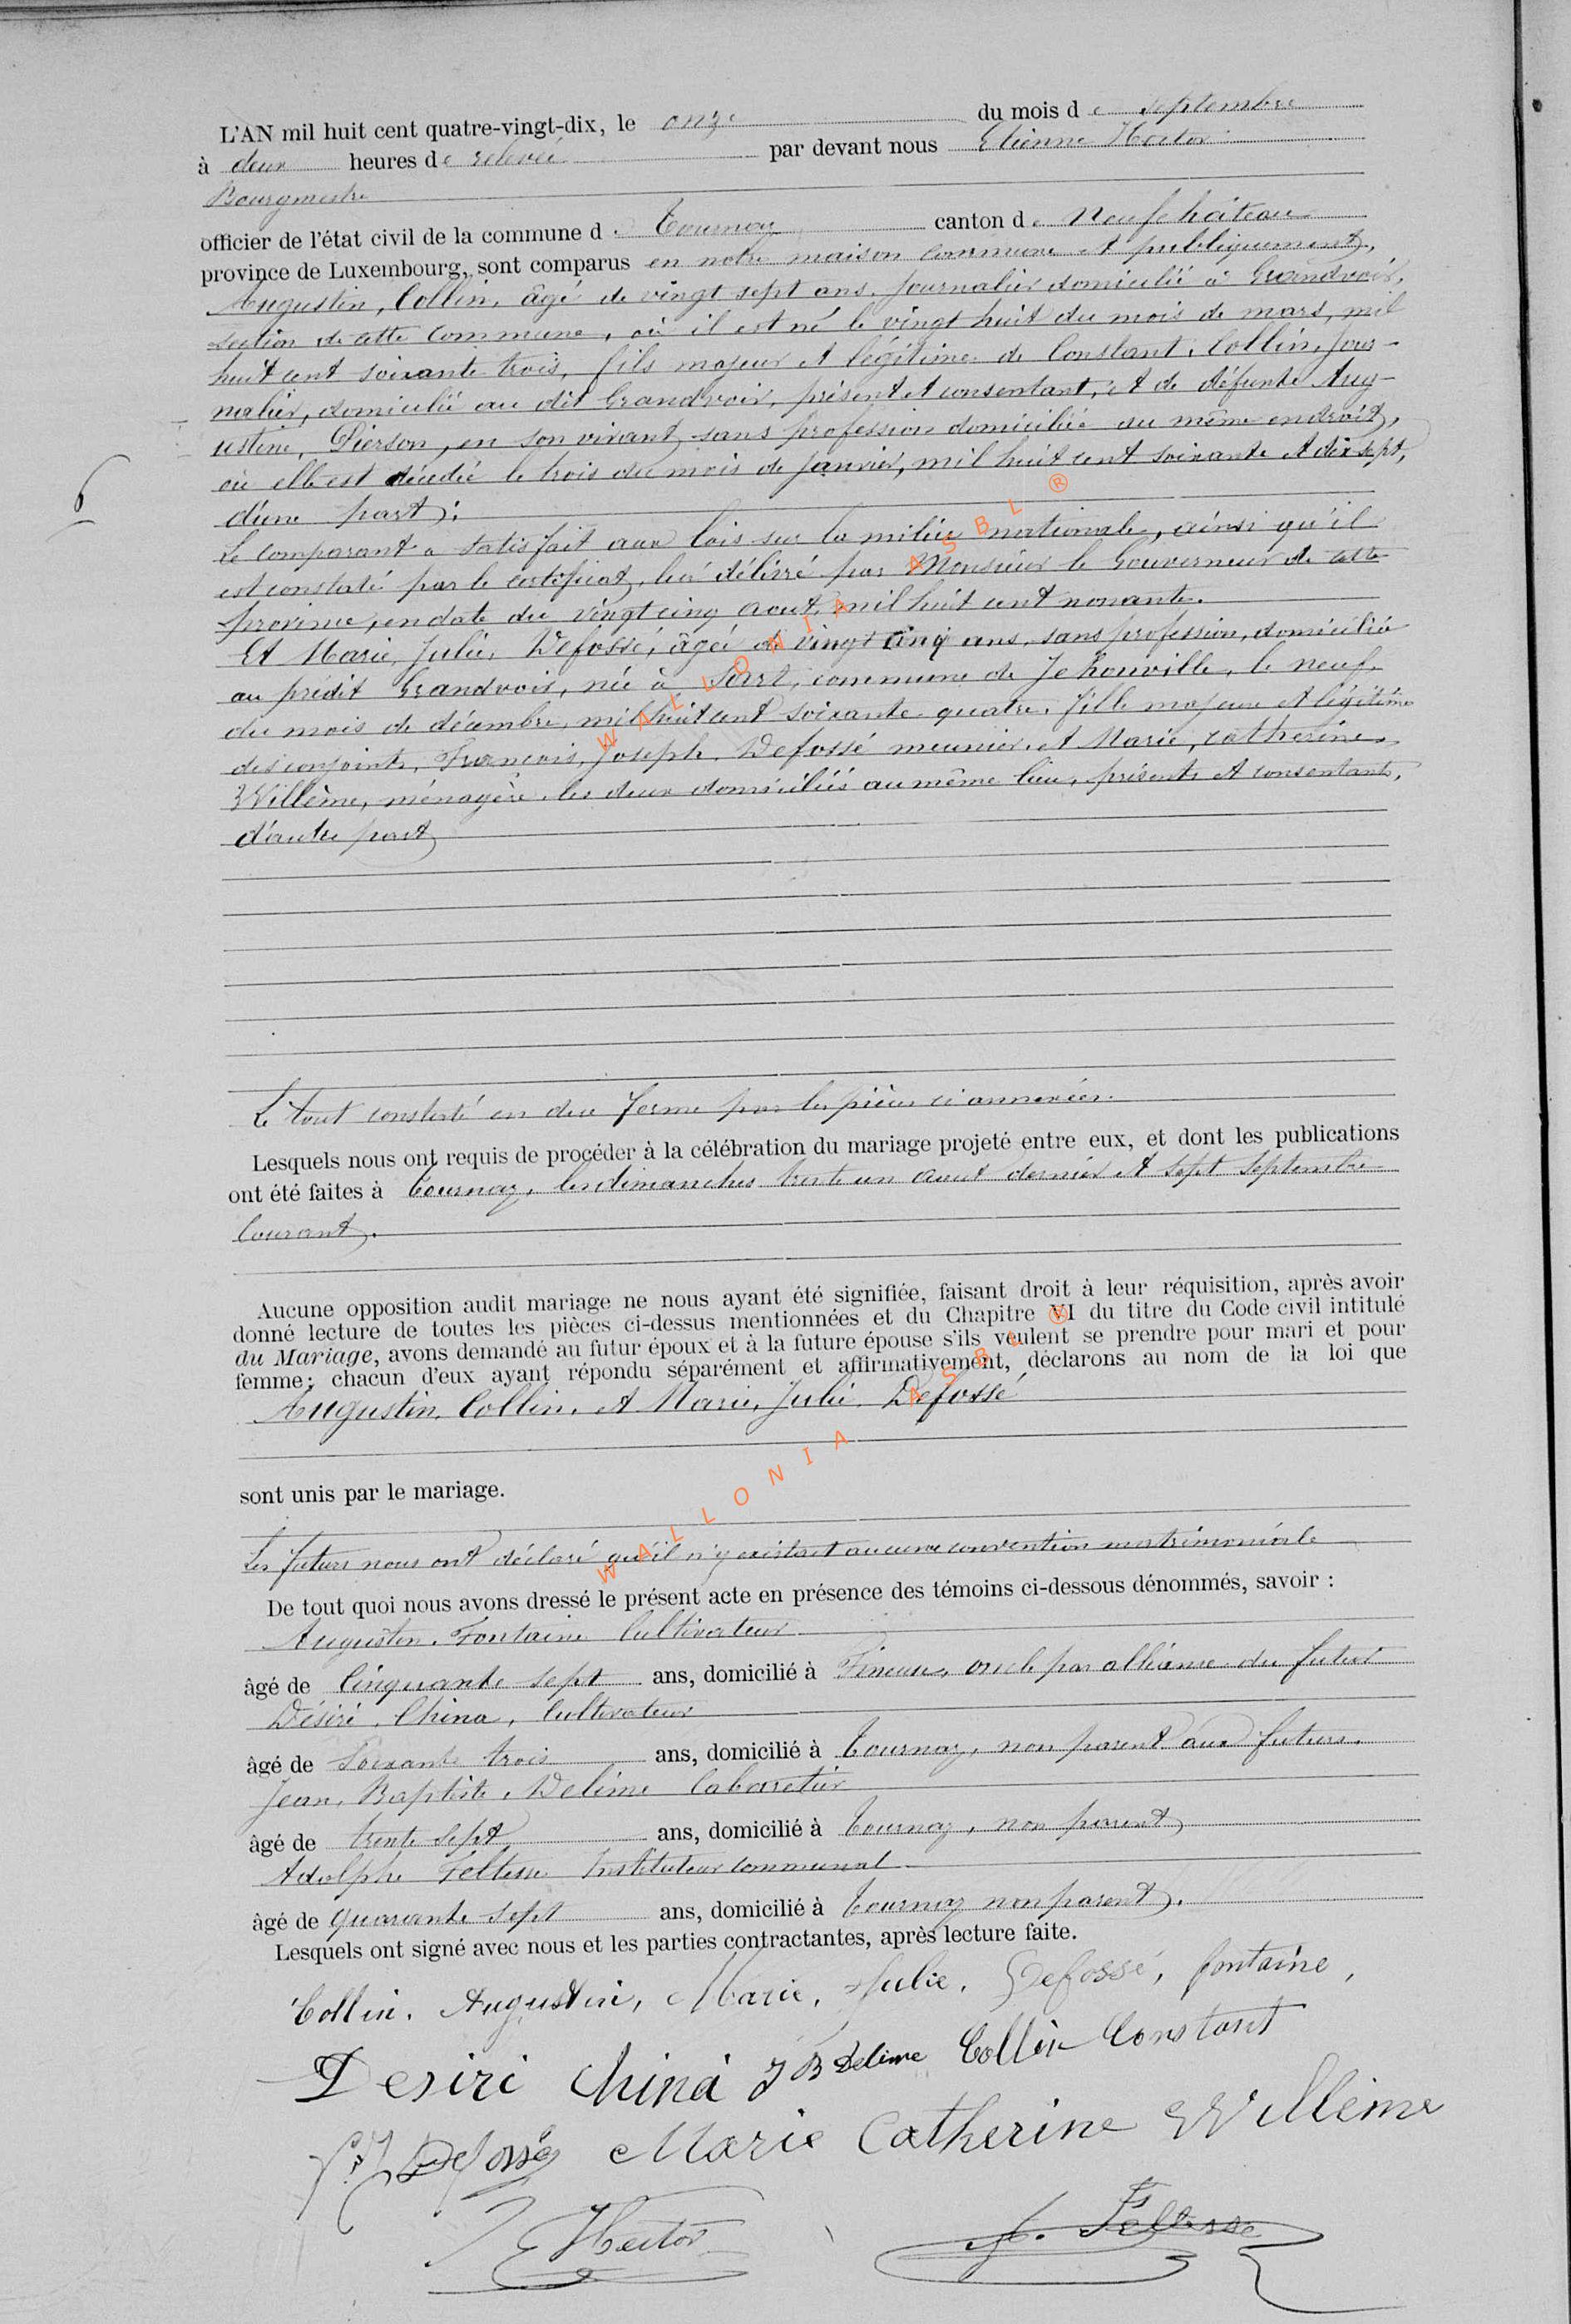 L'AN mil huit cent quatre-vingt-dix, le onze du mois de septembre
à deux heures de relevée par devant nous Etienne Hector
Bourgmestre
officier de l'état civil de la commune de Tournay canton de Neufchâteau
province de Luxembourg, sont comparus en notre maison commune et publiquement,
Augustin, Collin, âgé de vingt sept ans, journalier domicilié à Grandvoir,
section de cette commune, où il est né le vingt huit du mois de mars, mil
huit cent soixante trois, fils majeur et légitime de Constant, Collin, jour-
nalier, domicilié au dit Grandvoir, présent et consentant, et de défunte Aug-
ustine, Pierson, en son vivant, sans profession domiciliée au même endroit,
où elle est décédée le trois du mois de janvier, mil huit cent soixante et dix-sept,
6
d'une part;
Le comparant a satisfait aux lois sur la milice nationale, ainsi qu'il
est constaté par le certificat, lui délivré par Monsieur le Gouverneur de cette
province, en date du vingt cinq aout, mil huit cent nonante.
Et Marie, Julie, Defossé, âgée de vingt cinq ans, sans profession, domiciliée
au prédit Grandvoir, née à Sart, commune de Jehonville, le neuf
du mois de décembre, mil huit cent soixante quatre, fille majeure et légitime
des conjoints, François, Joseph, Defossé meunier, et Marie, Catherine,
Willème, ménagère, les deux domiciliés au même lieu, présents et consentants,
d'autre part
Le tout constaté en due forme par les pièces ci annexées.
Lesquels nous ont requis de procéder à la célébration du mariage projeté entre eux, et dont les publications
ont été faites à Tournay, les dimanches trente un aout dernier et sept septembre
courant.
Aucune opposition audit mariage ne nous ayant été signifiée, faisant droit à leur réquisition, après avoir
donné lecture de toutes les pièces ci-dessus mentionnées et du Chapitre VI du titre du Code civil intitulé
du Mariage, avons demandé au futur époux et à la future épouse s'ils veulent se prendre pour mari et pour
femme; chacun d'eux ayant répondu séparément et affirmativement, déclarons au nom de la loi que
Augustin, Collin, et Marie, Julie, Defossé
sont unis par le mariage.
Les futurs nous ont déclaré qu'il n'y existait aucune convention matrimoniale
De tout quoi nous avons dressé le présent acte en présence des témoins ci-dessous dénommés, savoir :
Augustin, Fontaine Cultivateur
âgé de Cinquante sept ans, domicilié à Fineuse, oncle par alliance du futur
Désiré, China, Cultivateur
âgé de Soixante trois ans, domicilié à Tournay, non parent aux futurs.
Jean, Baptiste, Delime Cabaretier
âgé de trente sept ans, domicilié à Tournay, non parent
Adolphe Feltesse Instituteur communal
âgé de quarante sept ans, domicilié à Tournay non parent.
Lesquels ont signé avec nous et les parties contractantes, après lecture faite.
Collin. Augustin, Marie, Julie, Defossé, fontaine,
Desiré China JB Delime Collin Constant
Defossé Marie Catherine Willème
E Hector A. Feltesse
WALLONIA ASBL ®
WALLONIA ASBL ®